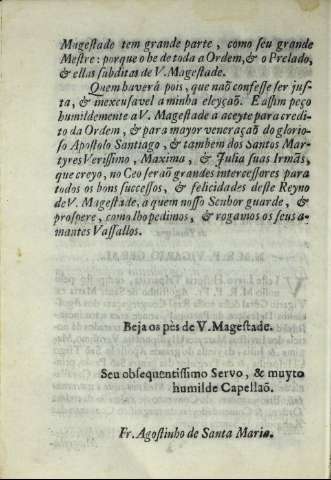 Mageſtade tem grande parte, como ſeu grande
Meſtre: porque o he de toda a Ordem, & o Prelado,
& ellas ſubditas de V. Mageſtade.
Quem haverà pois, que naõ confeſſe ſer juſ-
ta, & inexcuſavel a minha eleyçaõ. E aſſim peço
humildemente a V. Mageſtade a aceyte para credi-
to da Ordem, & para mayor veneraçaõ do glorio-
ſo Apoſtolo Santiago, & tambem dos Santos Mar-
tyres Veriſſimo, Maxima, & Julia ſuas Irmãs,
que creyo, no Ceo ſeraõ grandes interceſſores para
todos os bons ſucceſſos, & felicidades deſte Reyno
de V. Mageſtade, a quem noſſo Senhor guarde, &
proſpere, como lho pedimos, & rogamos os ſeus a-
mantes Vaſſallos.
Beja os pès de V. Mageſtade.
Seu obſequentiſſimo Servo, & muyto
humilde Capellaõ.
Fr. Agoſtinho de Santa Maria.